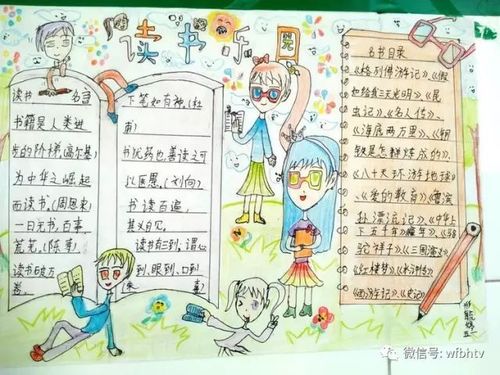 读书乐园
读书 名言
书籍是人类进
步的阶梯(高尔基)
为中华之崛起
而读书,(周恩来)
一日无书,百事
荒芜,(陈寿)
读书破万
卷,
下笔如有神,(杜
甫)
书犹药也,善读之可
以医愚,(刘向)
书读百遍,
其义自见,
读书有三到,谓心
到、眼到、口到
(朱熹)
名书目录
《格列佛游记》、《假
如给我三天光明》、《昆
虫记》、《名人传》、
《海底两万里》、《钢
铁是怎样炼成的》、
《八十天环游地球》
、《爱的教育》、《鲁滨
孙漂流记》、《中华上
下五千年》、《童年》、《骆
驼祥子》、《三国演义》
《红楼梦》、《水浒传》
《西游记》、《史记》
微信号: wfbhtv